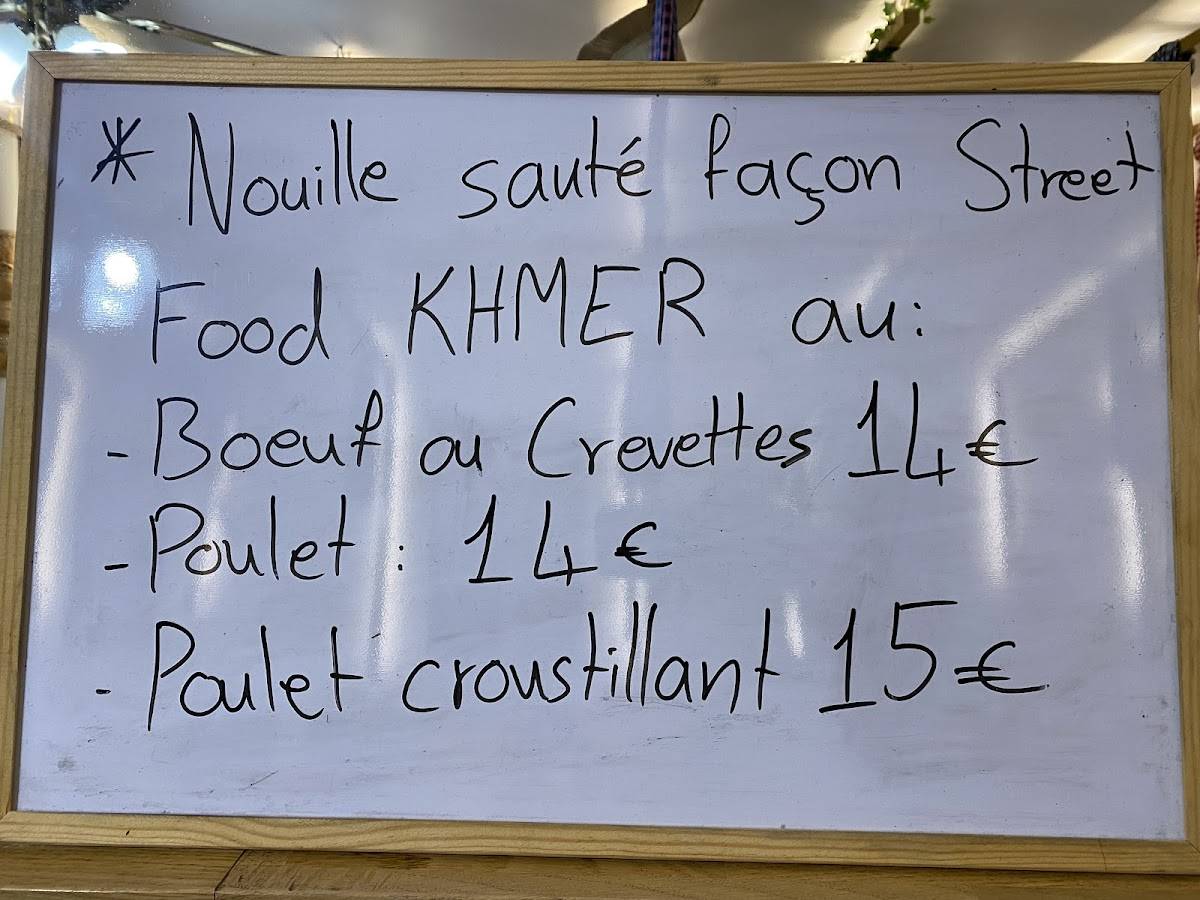 * Nouille sauté façon Street
Food KHMER au:
- Boeuf ou Crevettes 14€
- Poulet : 14€
- Poulet croustillant 15€